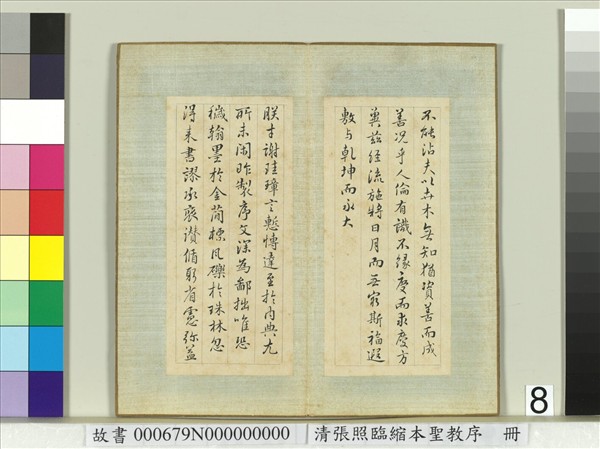 不能沾夫以卉木無知猶資善而成
善況乎人倫有識不緣慶而求慶方
冀茲經流施將日月而无窮斯福遐
敷与乾坤而永大
朕才謝珪璋言慙博達至於內典尤
所未閑昨製序文深為鄙拙唯恐
穢翰墨於金簡標瓦礫於珠林忽
得来書謬承褒讃循躬省慮弥益
8
故書 000679N000000000 清張照臨縮本聖教序 冊